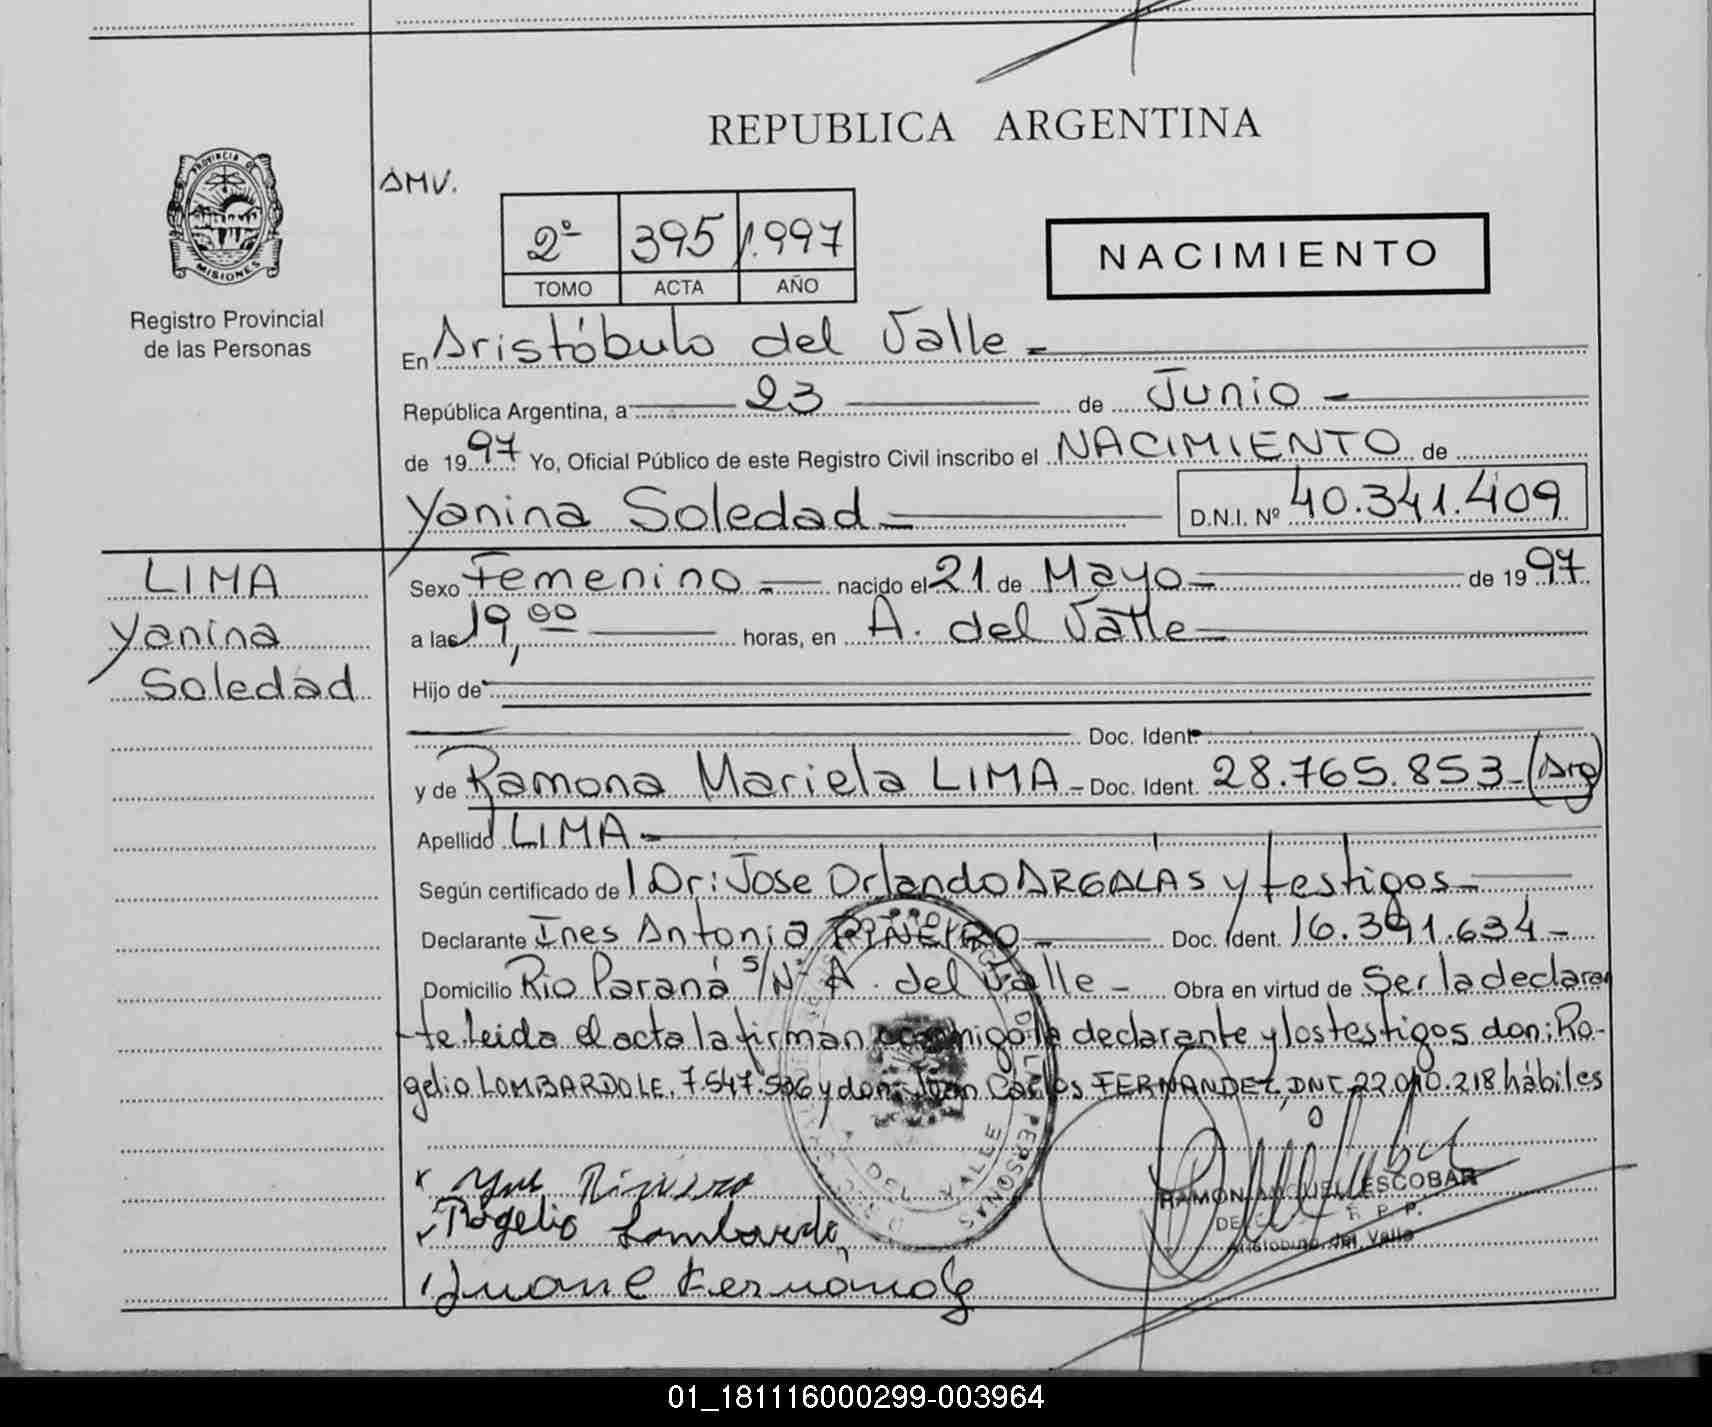 REPUBLICA ARGENTINA
PROVINCIA DE
MISIONES
Registro Provincial
de las Personas
AMV.
2º 395 1.997
TOMO ACTA AÑO
NACIMIENTO
En Aristóbulo del Valle
República Argentina, a 23 de Junio
de 1997 Yo, Oficial Público de este Registro Civil inscribo el NACIMIENTO de
Yanina Soledad D.N.I. Nº 40.341.409
LIMA
Yanina
Soledad
Sexo Femenino nacido el 21 de Mayo de 1997
a las 19,00 horas, en A. del Valle
Hijo de
Doc. Ident.
y de Ramona Mariela LIMA - Doc. Ident. 28.765.853 - (Arg)
Apellido LIMA
Según certificado de Dr: Jose Orlando ARGALAS y testigos
Declarante Ines Antonia PIÑEIRO Doc. Ident. 16.391.634
Domicilio Rio Paraná s/Nº A. del Valle - Obra en virtud de Ser la declaran
-te leida el acta la firman conmigo la declarante y los testigos don: Ro-
gelio LOMBARDO LE. 7.547.506 y don: Juan Carlos FERNANDEZ, DNI. 22.010.218 hábiles
Rogelio Lombardo
Juan C Fernández
RAMON MIGUEL ESCOBAR
R. P. P.
Aristóbulo del Valle
DEL VALLE
PERSONAS
01_181116000299-003964